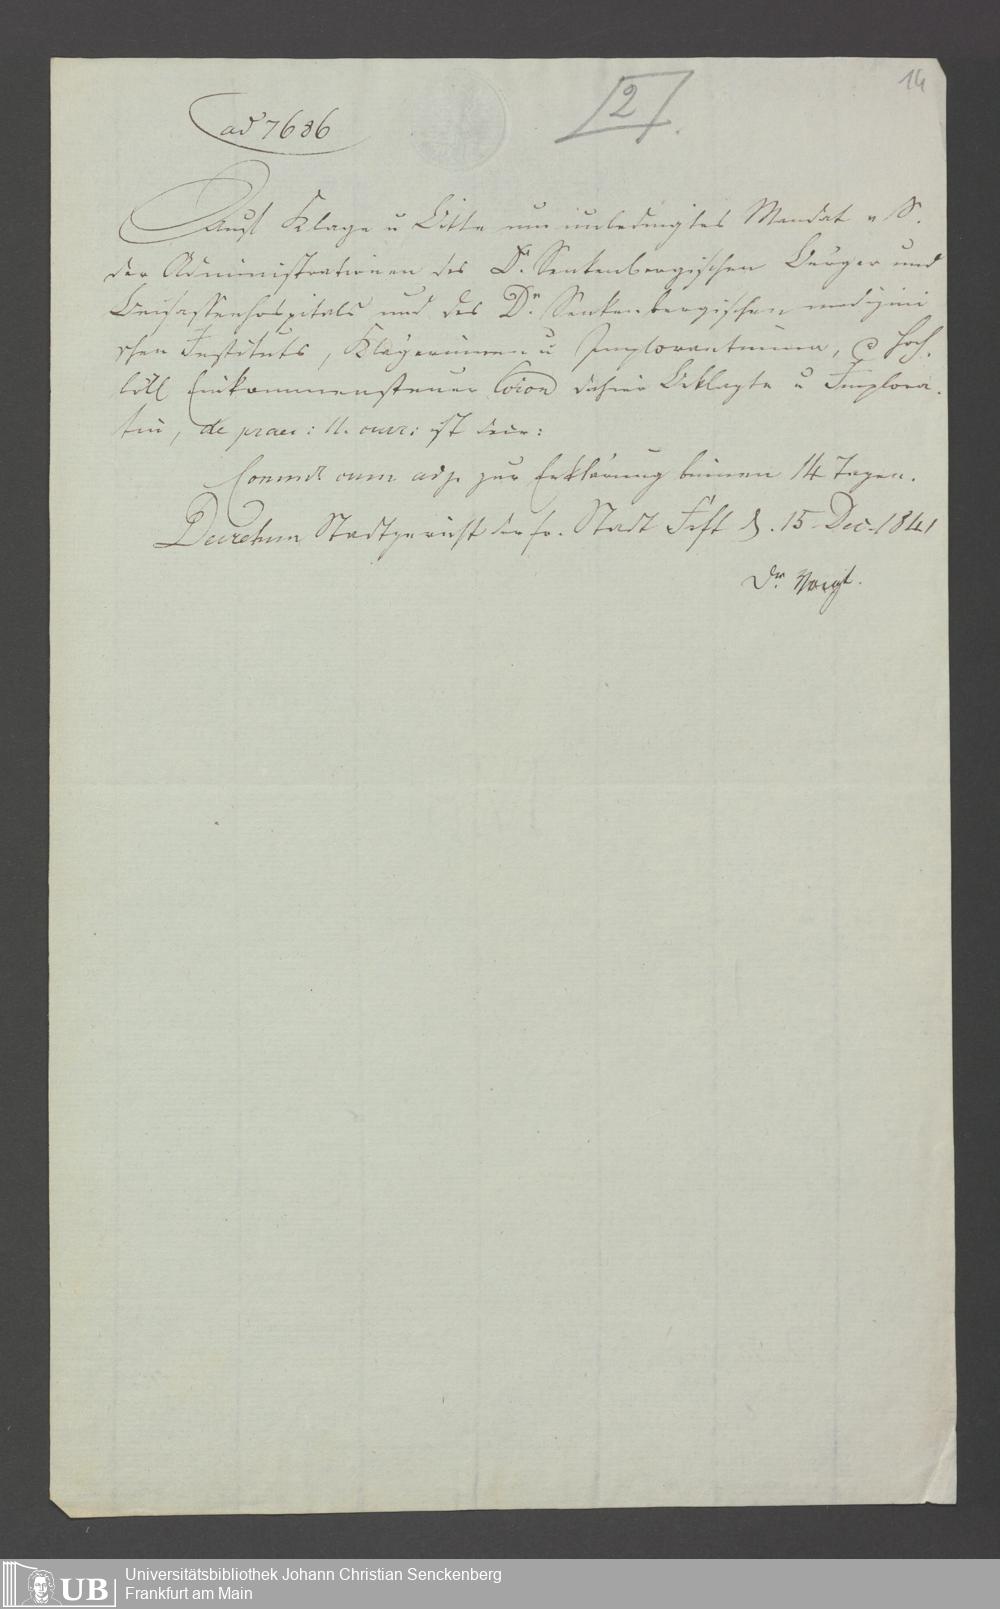 14
2
ad 7686
Auf Klage u Bitte um unbedingtes Mandat v. S.
der Administrationen des Dr. Senkenbergischen Bürger und
Beisassenhospitals und des Dr. Senkenbergischen medizini
schen Instituts, Klägerinnen u Implorantinnen, c̄ hoch,
löbl Einkommensteuer Coion dahier Beklagte u Implora,
tin, de praes: 11. curr: ist decr:
Comunic cum adj. zur Erklärung binnen 14 Tagen.
Decretum Stadtgericht der fr. Stadt Frft d. 15 Dec. 1841
Dr. Voigt.
UB
Universitätsbibliothek Johann Christian Senckenberg
Frankfurt am Main